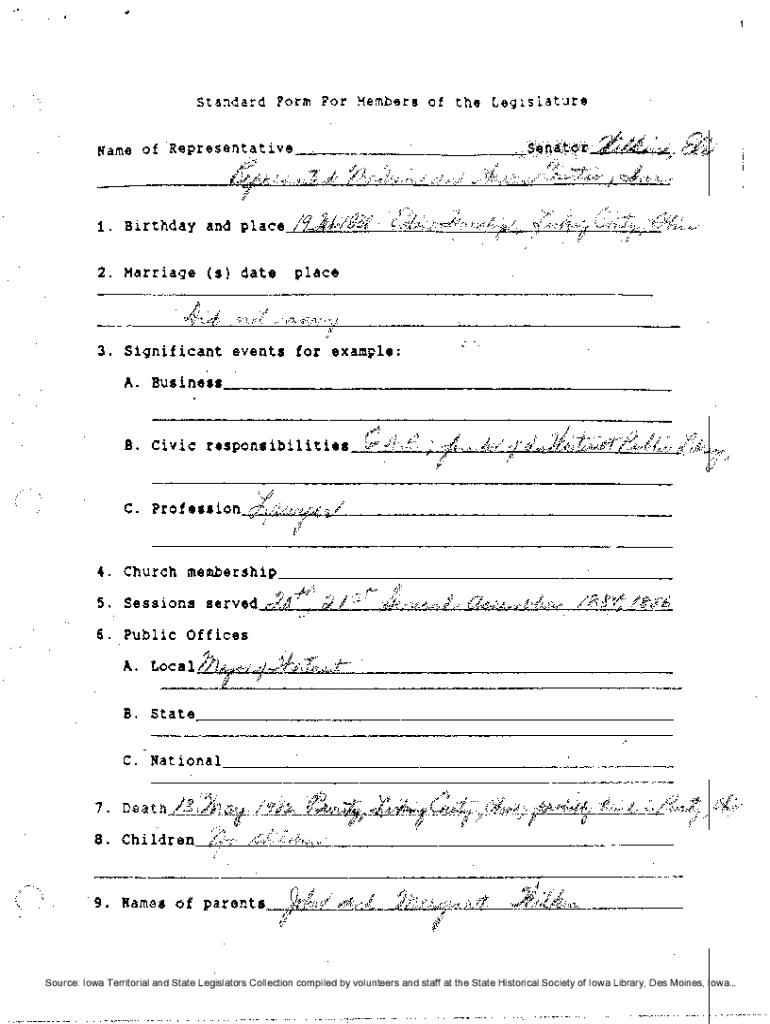 1
Standard Form For Members of the Legislature
Name of Representative Senator Wilkin, Eli
Represented Madison and Counties, Iowa
1. Birthday and place 19 Feb 1830 Township, Licking County, Ohio
2. Marriage (s) date place
Did not marry
3. Significant events for example:
A. Business
B. Civic responsibilities G.A.R.; founder of the Winterset Public Library,
C. Profession Lawyer
4. Church membership
5. Sessions served 20th 21st General Assemblies 1884, 1886
6. Public Offices
A. Local Mayor of Winterset
B. State
C. National
7. Death 13 May Licking County, Ohio; buried in Ohio
8. Children No children
9. Names of parents John and Margaret Wilkin
Source: Iowa Territorial and State Legislators Collection compiled by volunteers and staff at the State Historical Society of Iowa Library, Des Moines, Iowa...